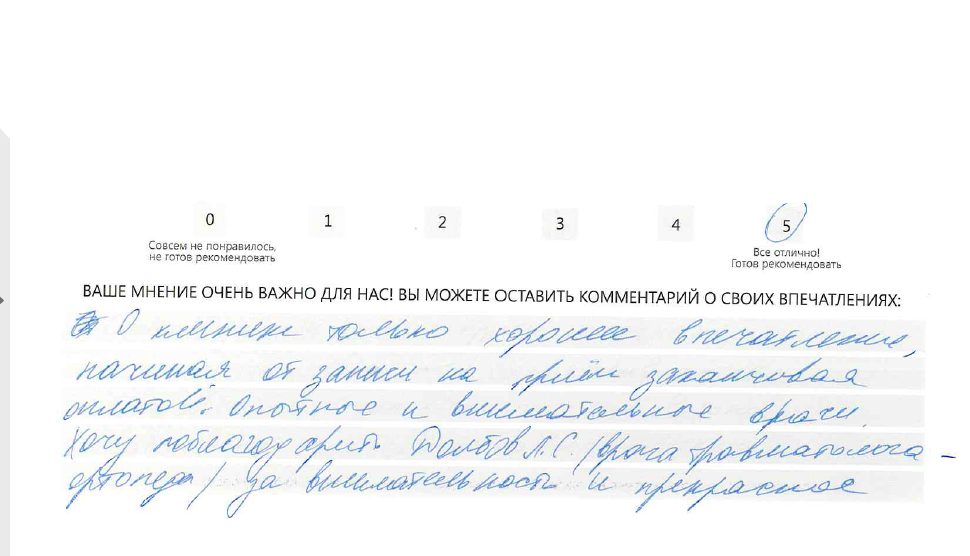 0 1 2 3 4 5
Совсем не понравилось,
не готов рекомендовать
Все отлично!
Готов рекомендовать
ВАШЕ МНЕНИЕ ОЧЕНЬ ВАЖНО ДЛЯ НАС! ВЫ МОЖЕТЕ ОСТАВИТЬ КОММЕНТАРИЙ О СВОИХ ВПЕЧАТЛЕНИЯХ:
О клинике только хорошее впечатление,
начиная от записи на приём заканчивая
оплатой. Опытные и внимательные врачи.
Хочу поблагодарить А.С. /врача травматолога -
ортопеда/ за внимательность и прекрасное